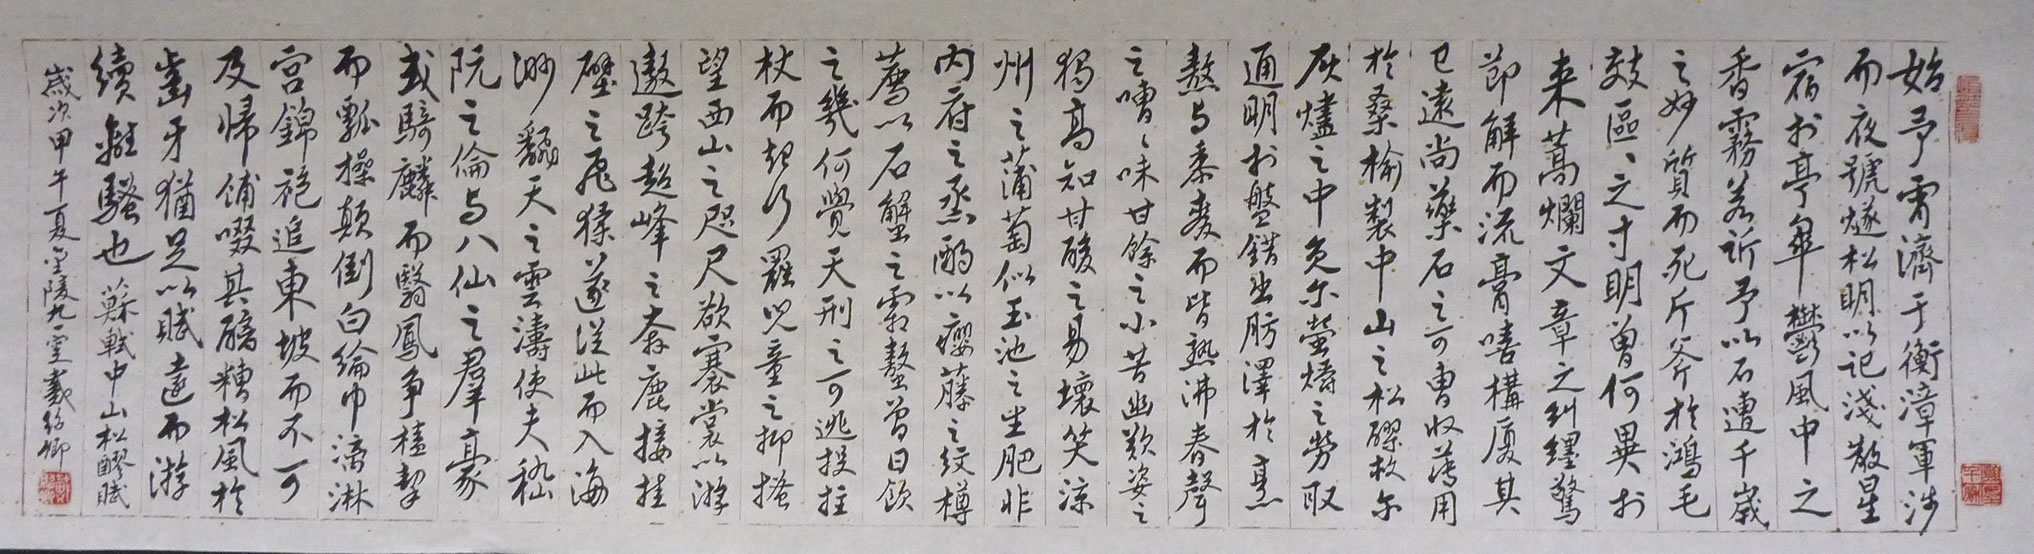 始予宵濟于衡漳軍涉
而夜號燧松明以記淺散星
宿於亭皋鬱風中之
香霧若訴予以不遭千歲
之妙質而死斤斧於鴻毛
效區區之寸明曾何異於
束蒿爛文章之糾纏驚
節解而流膏嘻構廈其
已遠尚藥石之可曹收薄用
於桑榆製中山之松醪救爾
灰燼之中免爾螢爝之勞取
通明於盤錯出肪澤於烹
熬與黍麥而皆熟沸舂聲
之嘈嘈味甘餘之小苦幽歎姿之
獨高知甘酸之易壞笑涼
州之蒲萄似玉池之生肥非
內府之烝酪以癭藤之紋樽
薦以石蟹之霜螯曾日飲
之幾何覺天刑之可逃投拄
杖而起行罷兒童之抑搔
望西山之咫尺欲褰裳以游
遨跨超峰之奔鹿接挂
壁之飛猱遂從此而入海
渺翻天之雲濤使夫嵇
阮之倫與八仙之群豪
或騎麟而翳鳳爭榼挈
而瓢操顛倒白綸巾淋漓
宮錦袍追東坡而不可
及歸餔歠其醨糟松風於
齒牙猶足以賦遠而游
續離騷也 蘇軾中山松醪賦
歲次甲午夏金陵九